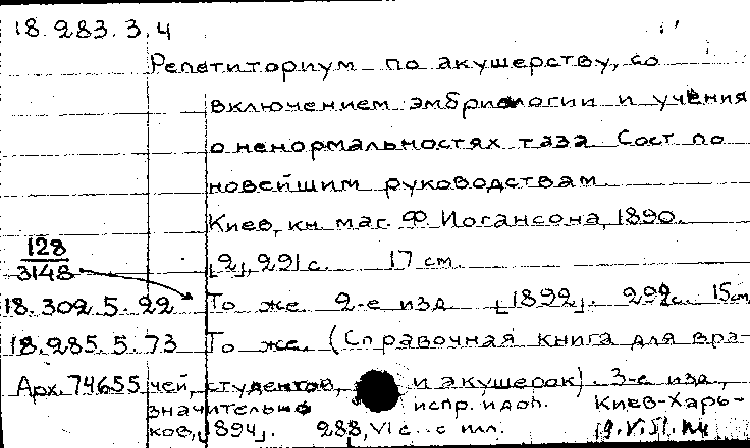 18.283.3.4
Репетиториум по акушерству, со
включением эмбриологии и учения
о ненормальностях таза. Сост. по
новейшим руководствам.
Киев, кн. маг. Ф. Иогансона, 1890.
128
3148
[2], 221 с. 17 см.
18.302.5.22 То же. 2-е изд. [1892]. 292 с. 15 см
18.285.5.73 То же. (Справочная книга для вра-
Арх. 74655 чей, студентов, и акушерок). 3-е изд.,
значительно испр. и доп. Киев-Харь-
ков, [1894]. 288, VI с. с илл.